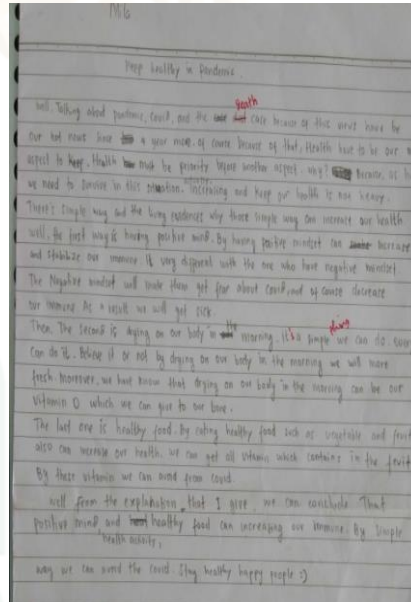 M6
Keep healthy in Pandemic.
well. Talking about pandemic, covid, and the death case because of this virus have be
our hot news since a year more. of course because of that, Health have to be our
aspect to keep. Health must be priority before another aspect. why? Because, as
we need to survive in this situation. Increasing and keep our health is not heavy.
There's simple way and the living evidences why those simple way can increase our health
well, the first way is having positive mind. By having positive mindset can increase
and stabilize our immune it very different with the one who have negative mindset.
The Negative mindset will make them get fear about covid, and of cause decrease
our immune. As a result we will get sick.
Then, The second is drying on our body in morning. It's a simple thing we can do. ever
can do it. Believe it or not by drying on our body in the morning we will more
fresh. Moreover, we have know that drying on our body in the morning can be our
vitamin D which we can give to our bone.
The last one is healthy food. By eating healthy food such as vegetable and fruit
also can increase our health. we can get all vitamin which contains in the fruit
By these vitamin we can avoid from covid.
well from the explanation, that I give, we can conclude That
positive mind and healthy food can increasing our immune. By simple
health activity,
way we can avoid the covid. Stay healthy happy people :)